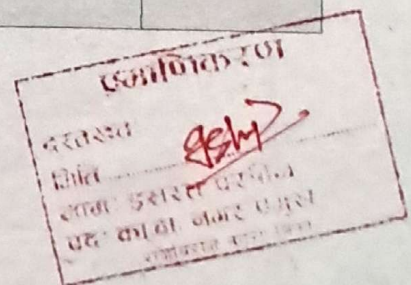 प्रमाणिकरण
दस्तखत
मिति
नामः इसरत परवीन
पदः का.वा. नगर प्रमुख